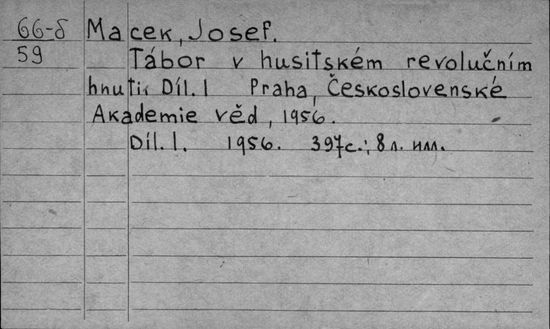 66-б Macek, Josef.
59 Tábor v husitském revolučním
hnutí. Díl. I Praha, Československé
Akademie věd, 1956.
Díl. I. 1956. 397с.; 8 л. илл.